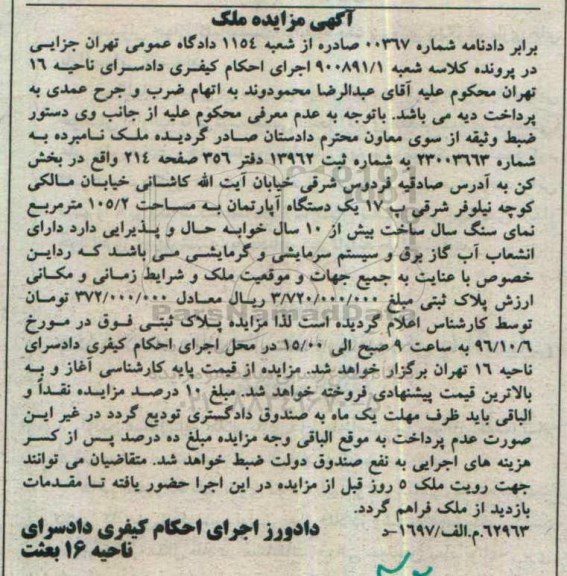 آگهی مزایده ملک
برابر دادنامه شماره ۰۰۳۶۷ صادره از شعبه ۱۱۵٤ دادگاه عمومی تهران جزایی
در پرونده کلاسه شعبه ۹۰۰۸۹۱/۱ اجرای احکام کیفری دادسرای ناحیه ۱۶
تهران محکوم علیه آقای عبدالرضا محمودوند به اتهام ضرب و جرح عمدی به
پرداخت دیه می باشد. باتوجه به عدم معرفی محکوم علیه از جانب وی دستور
ضبط وثیقه از سوی معاون محترم دادستان صادر گردیده ملک نامبرده به
شماره ۲۳۰۰۳۶۶۳ به شماره ثبت ۱۳۹۶۲ دفتر ۳۵۶ صفحه ۲۱٤ واقع در بخش
کن به آدرس صادقیه فردوس شرقی خیابان آیت الله کاشانی خیابان مالکی
کوچه نیلوفر شرقی پ ۱۷ یک دستگاه آپارتمان به مساحت ۱۰۵/۲ مترمربع
نمای سنگ سال ساخت بیش از ۱۰ سال خوابه حال و پذیرایی دارد دارای
انشعاب آب گاز برق و سیستم سرمایشی و گرمایشی می باشد که رداین
خصوص با عنایت به جمیع جهات و موقعیت ملک و شرایط زمانی و مکانی
ارزش پلاک ثبتی مبلغ ۳/۷۲۰/۰۰۰/۰۰۰ ریال معادل ۳۷۲/۰۰۰/۰۰۰ تومان
توسط کارشناس اعلام گردیده است لذا مزایده پلاک ثبتی فوق در مورخ
۹۶/۱۰/۶ به ساعت ۹ صبح الی ۱۵/۰۰ در محل اجرای احکام کیفری دادسرای
ناحیه ۱۶ تهران برگزار خواهد شد. مزایده از قیمت پایه کارشناسی آغاز و به
بالاترین قیمت پیشنهادی فروخته خواهد شد. مبلغ ۱۰ درصد مزایده نقداً و
الباقی باید ظرف مهلت یک ماه به صندوق دادگستری تودیع گردد در غیر این
صورت عدم پرداخت به موقع الباقی وجه مزایده مبلغ ده درصد پس از کسر
هزینه های اجرایی به نفع صندوق دولت ضبط خواهد شد. متقاضیان می توانند
جهت رویت ملک ۵ روز قبل از مزایده در این اجرا حضور یافته تا مقدمات
بازدید از ملک فراهم گردد.
۶۲۹۶۳.م.الف/۱۶۹۷-د
دادورز اجرای احکام کیفری دادسرای
ناحیه ۱۶ بعثت
ParsNamadData